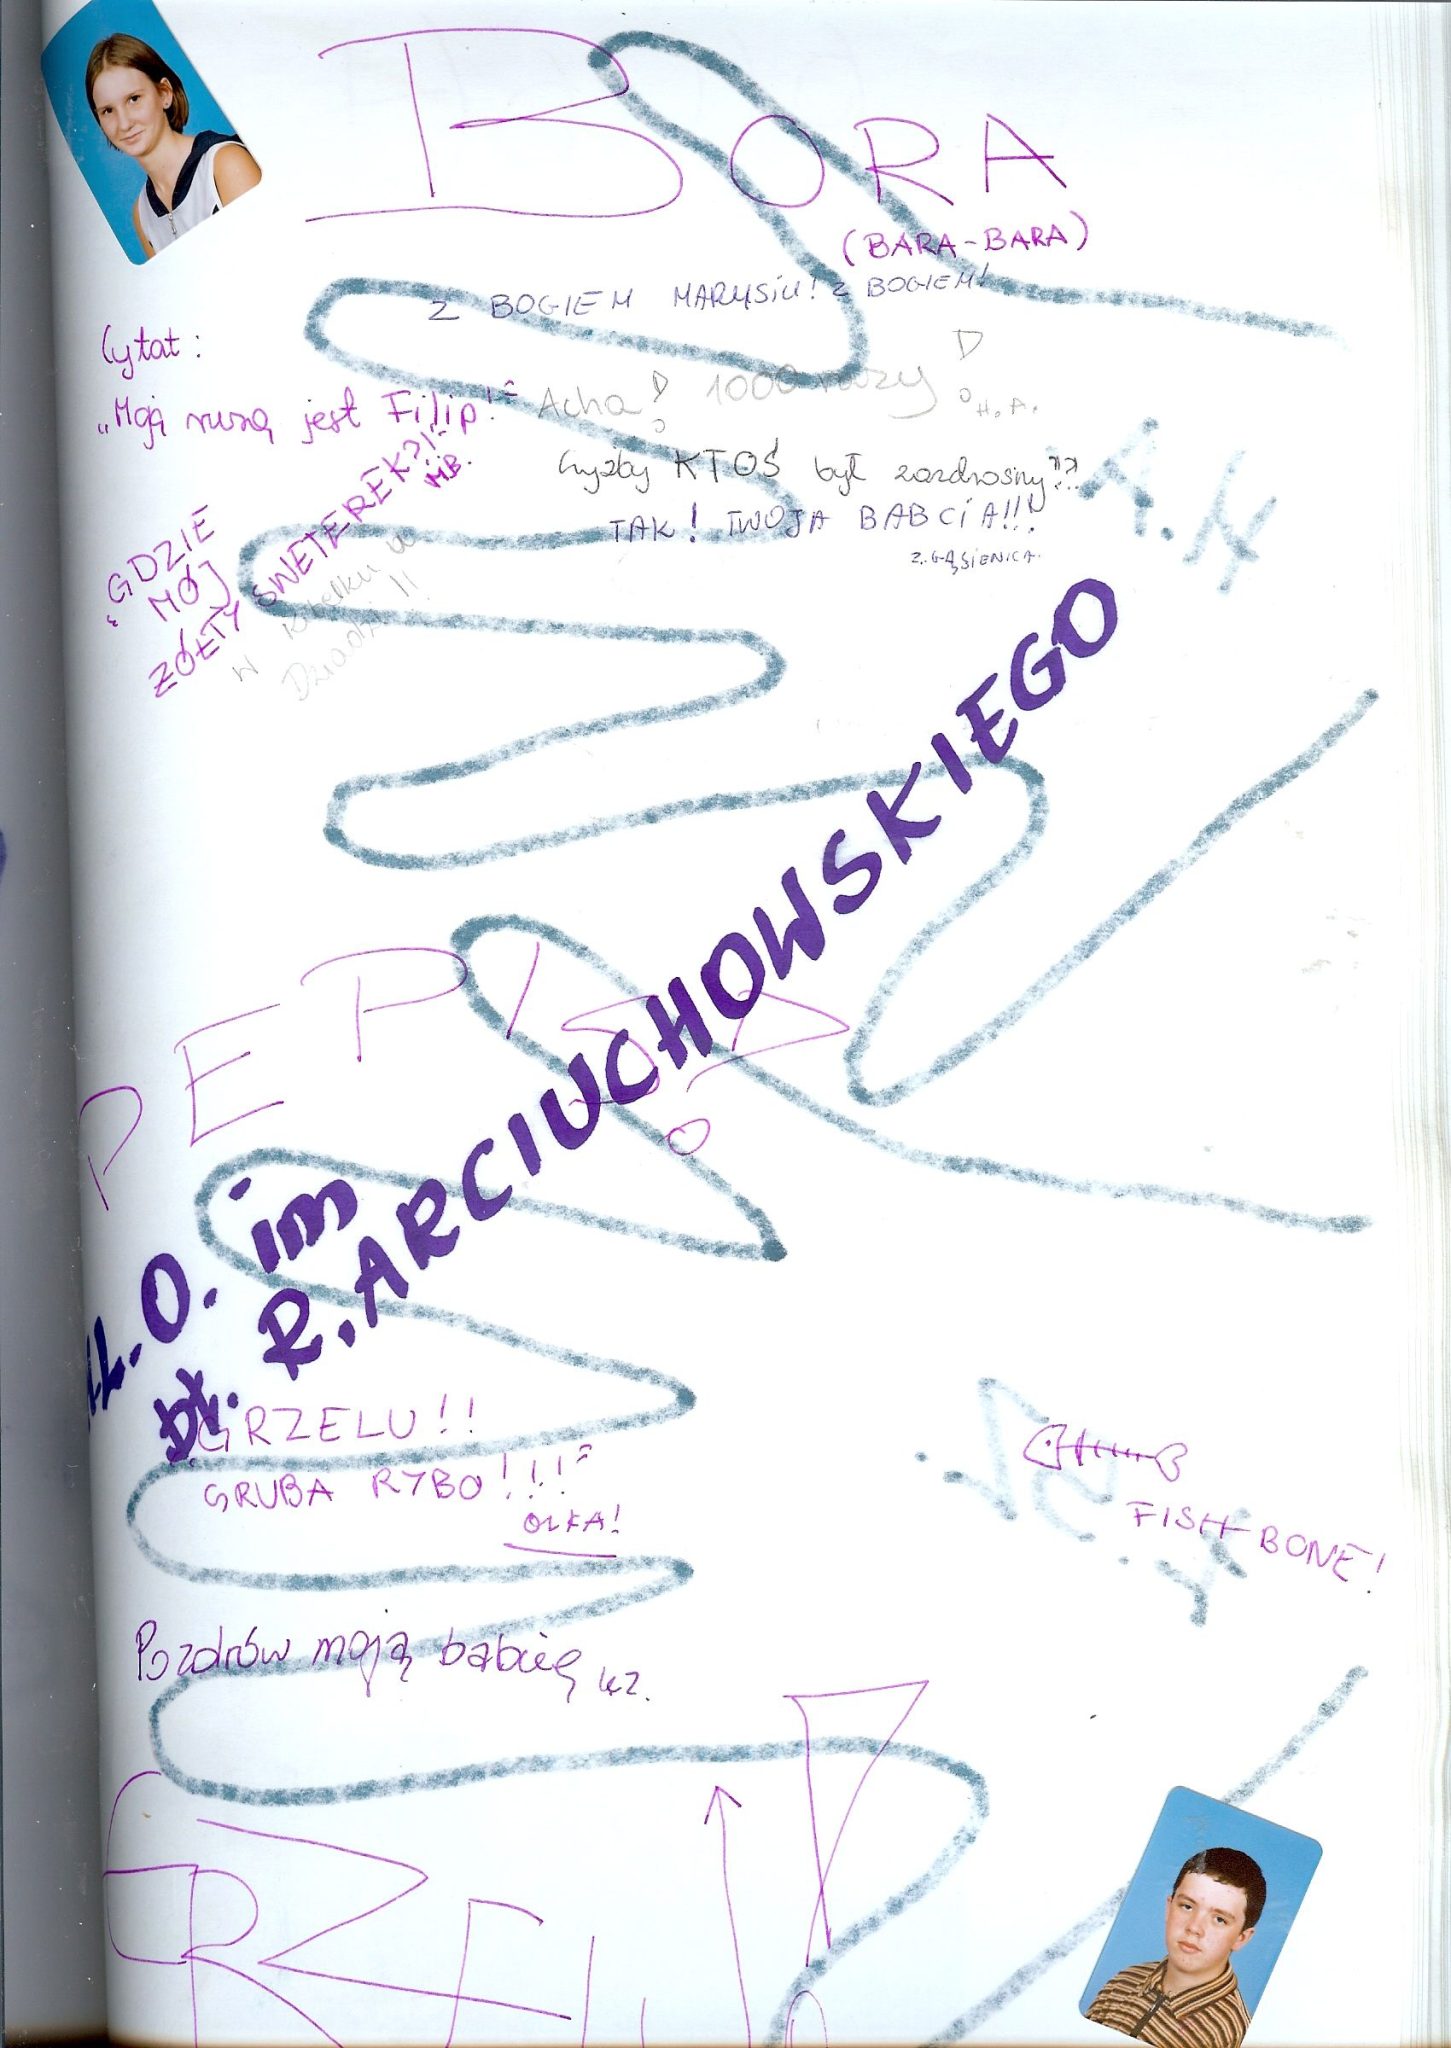 BORA
(BARA-BARA)
Z BOGIEM MARYSIU! Z BOGIEM!
Cytat:
„Moją muzą jest Filip!"
Acha! 1000 razy!
H.A.
Czyżby KTOŚ był zazdrosny??
TAK! TWOJA BABCIA!!!
Z. GĄSIENICA.
„GDZIE
MÓJ
ŻÓŁTY SWETEREK?!"
MB.
A.H
L.O. im
bł. R. ARCIUCHOWSKIEGO
GRZELU!!
GRUBA RYBO!!!"
OLKA!
FISHBONE!
Pozdrów moją babcię
GRZELU!